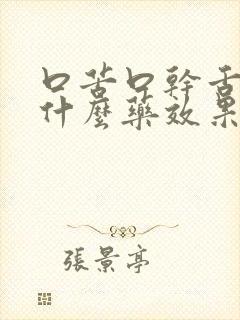 口苦口幹舌
什麼藥效果
張景亭